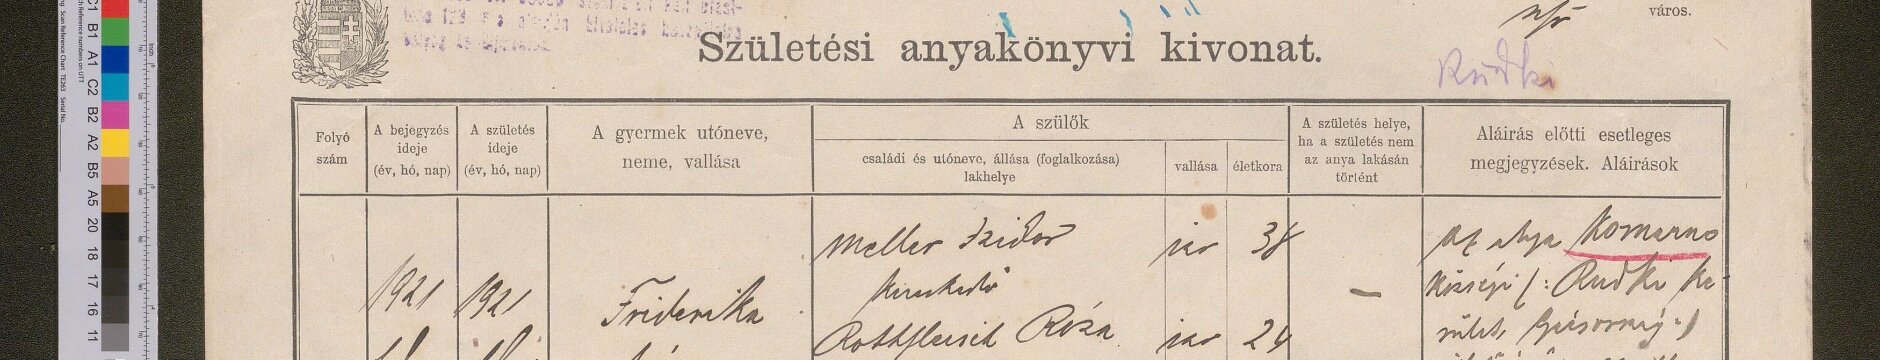 C1 B1 A1 C2 B2 A2 B5 A5 20 18 17 16 11
város.
Születési anyakönyvi kivonat.
Rudki
Folyó
szám
A bejegyzés
ideje
(év, hó, nap)
A születés
ideje
(év, hó, nap)
A gyermek utóneve,
neme, vallása
A szülők
családi és utóneve, állása (foglalkozása)
lakhelye
vallása
életkora
A születés helye,
ha a születés nem
az anya lakásán
történt
Aláírás előtti esetleges
megjegyzések. Aláírások
1921
1921
Friderika
Meller Izidor
izr
38
kereskedő
Róza
izr
24
—
Az atya Komarno
községi (: Rudki ke-
rület